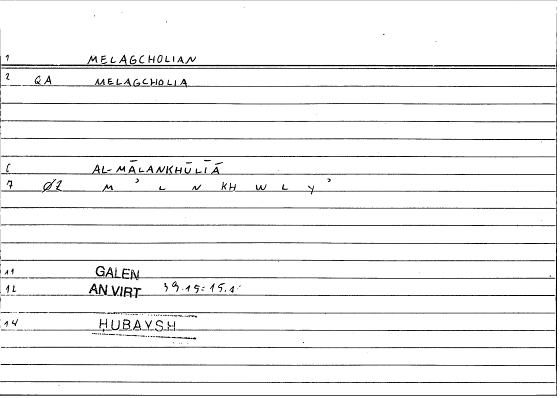 1 MELAGCHOLIAN
2 QA MELAGCHOLIA
6 AL-MĀLANKHŪLĪĀ
7 Ø2 M ʾ L N KH W L Y ʾ
11 GALEN
12 AN VIRT 39.15: 15.1
14 ḤUBAYSH